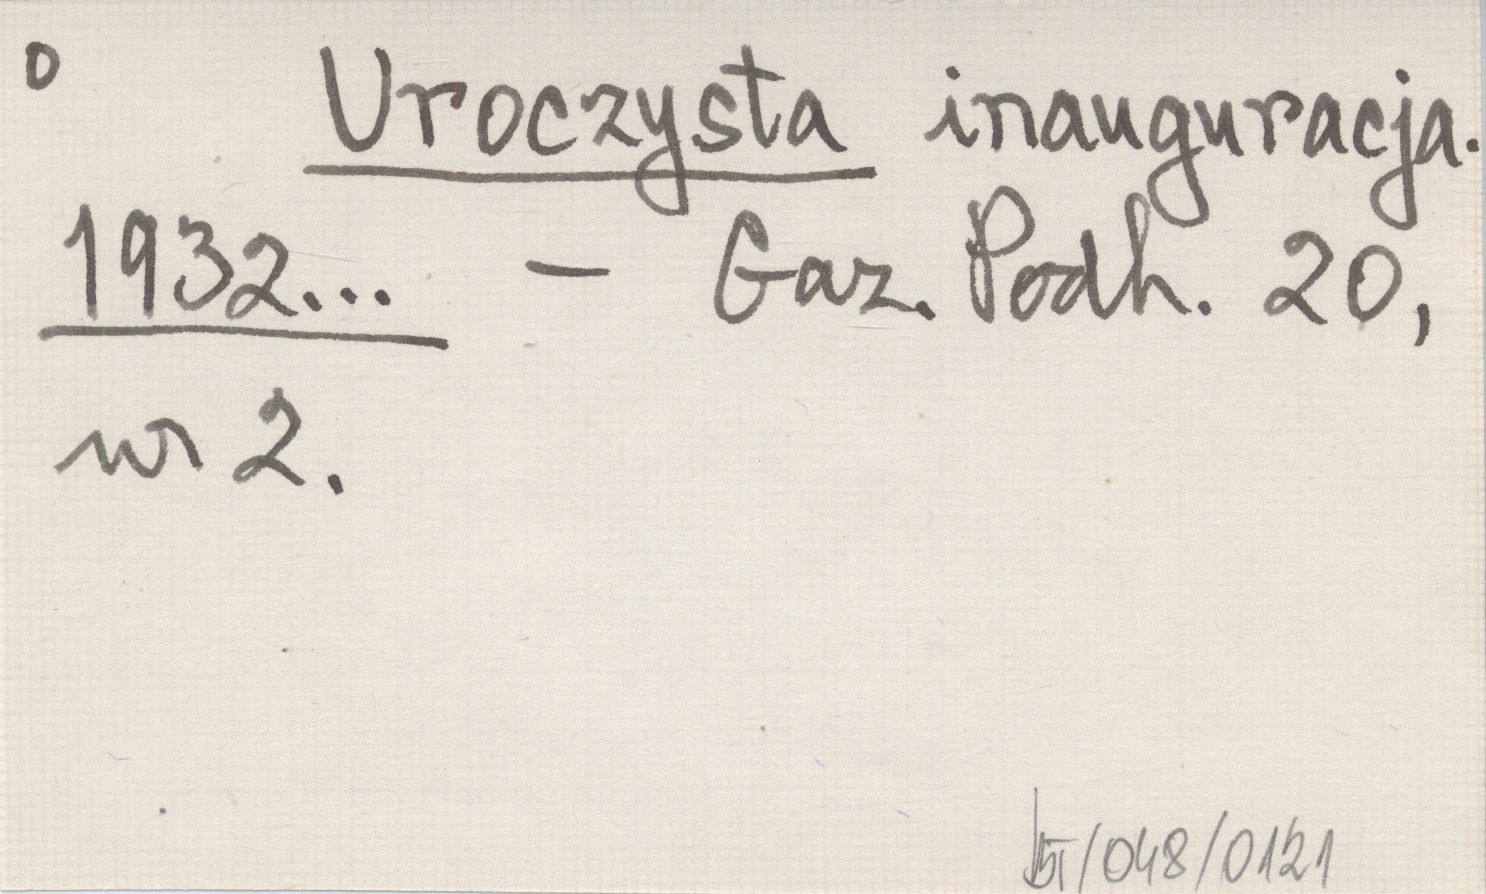 o Uroczysta inauguracja.
1932... – Gaz. Podh. 20,
nr 2.
/048/0121